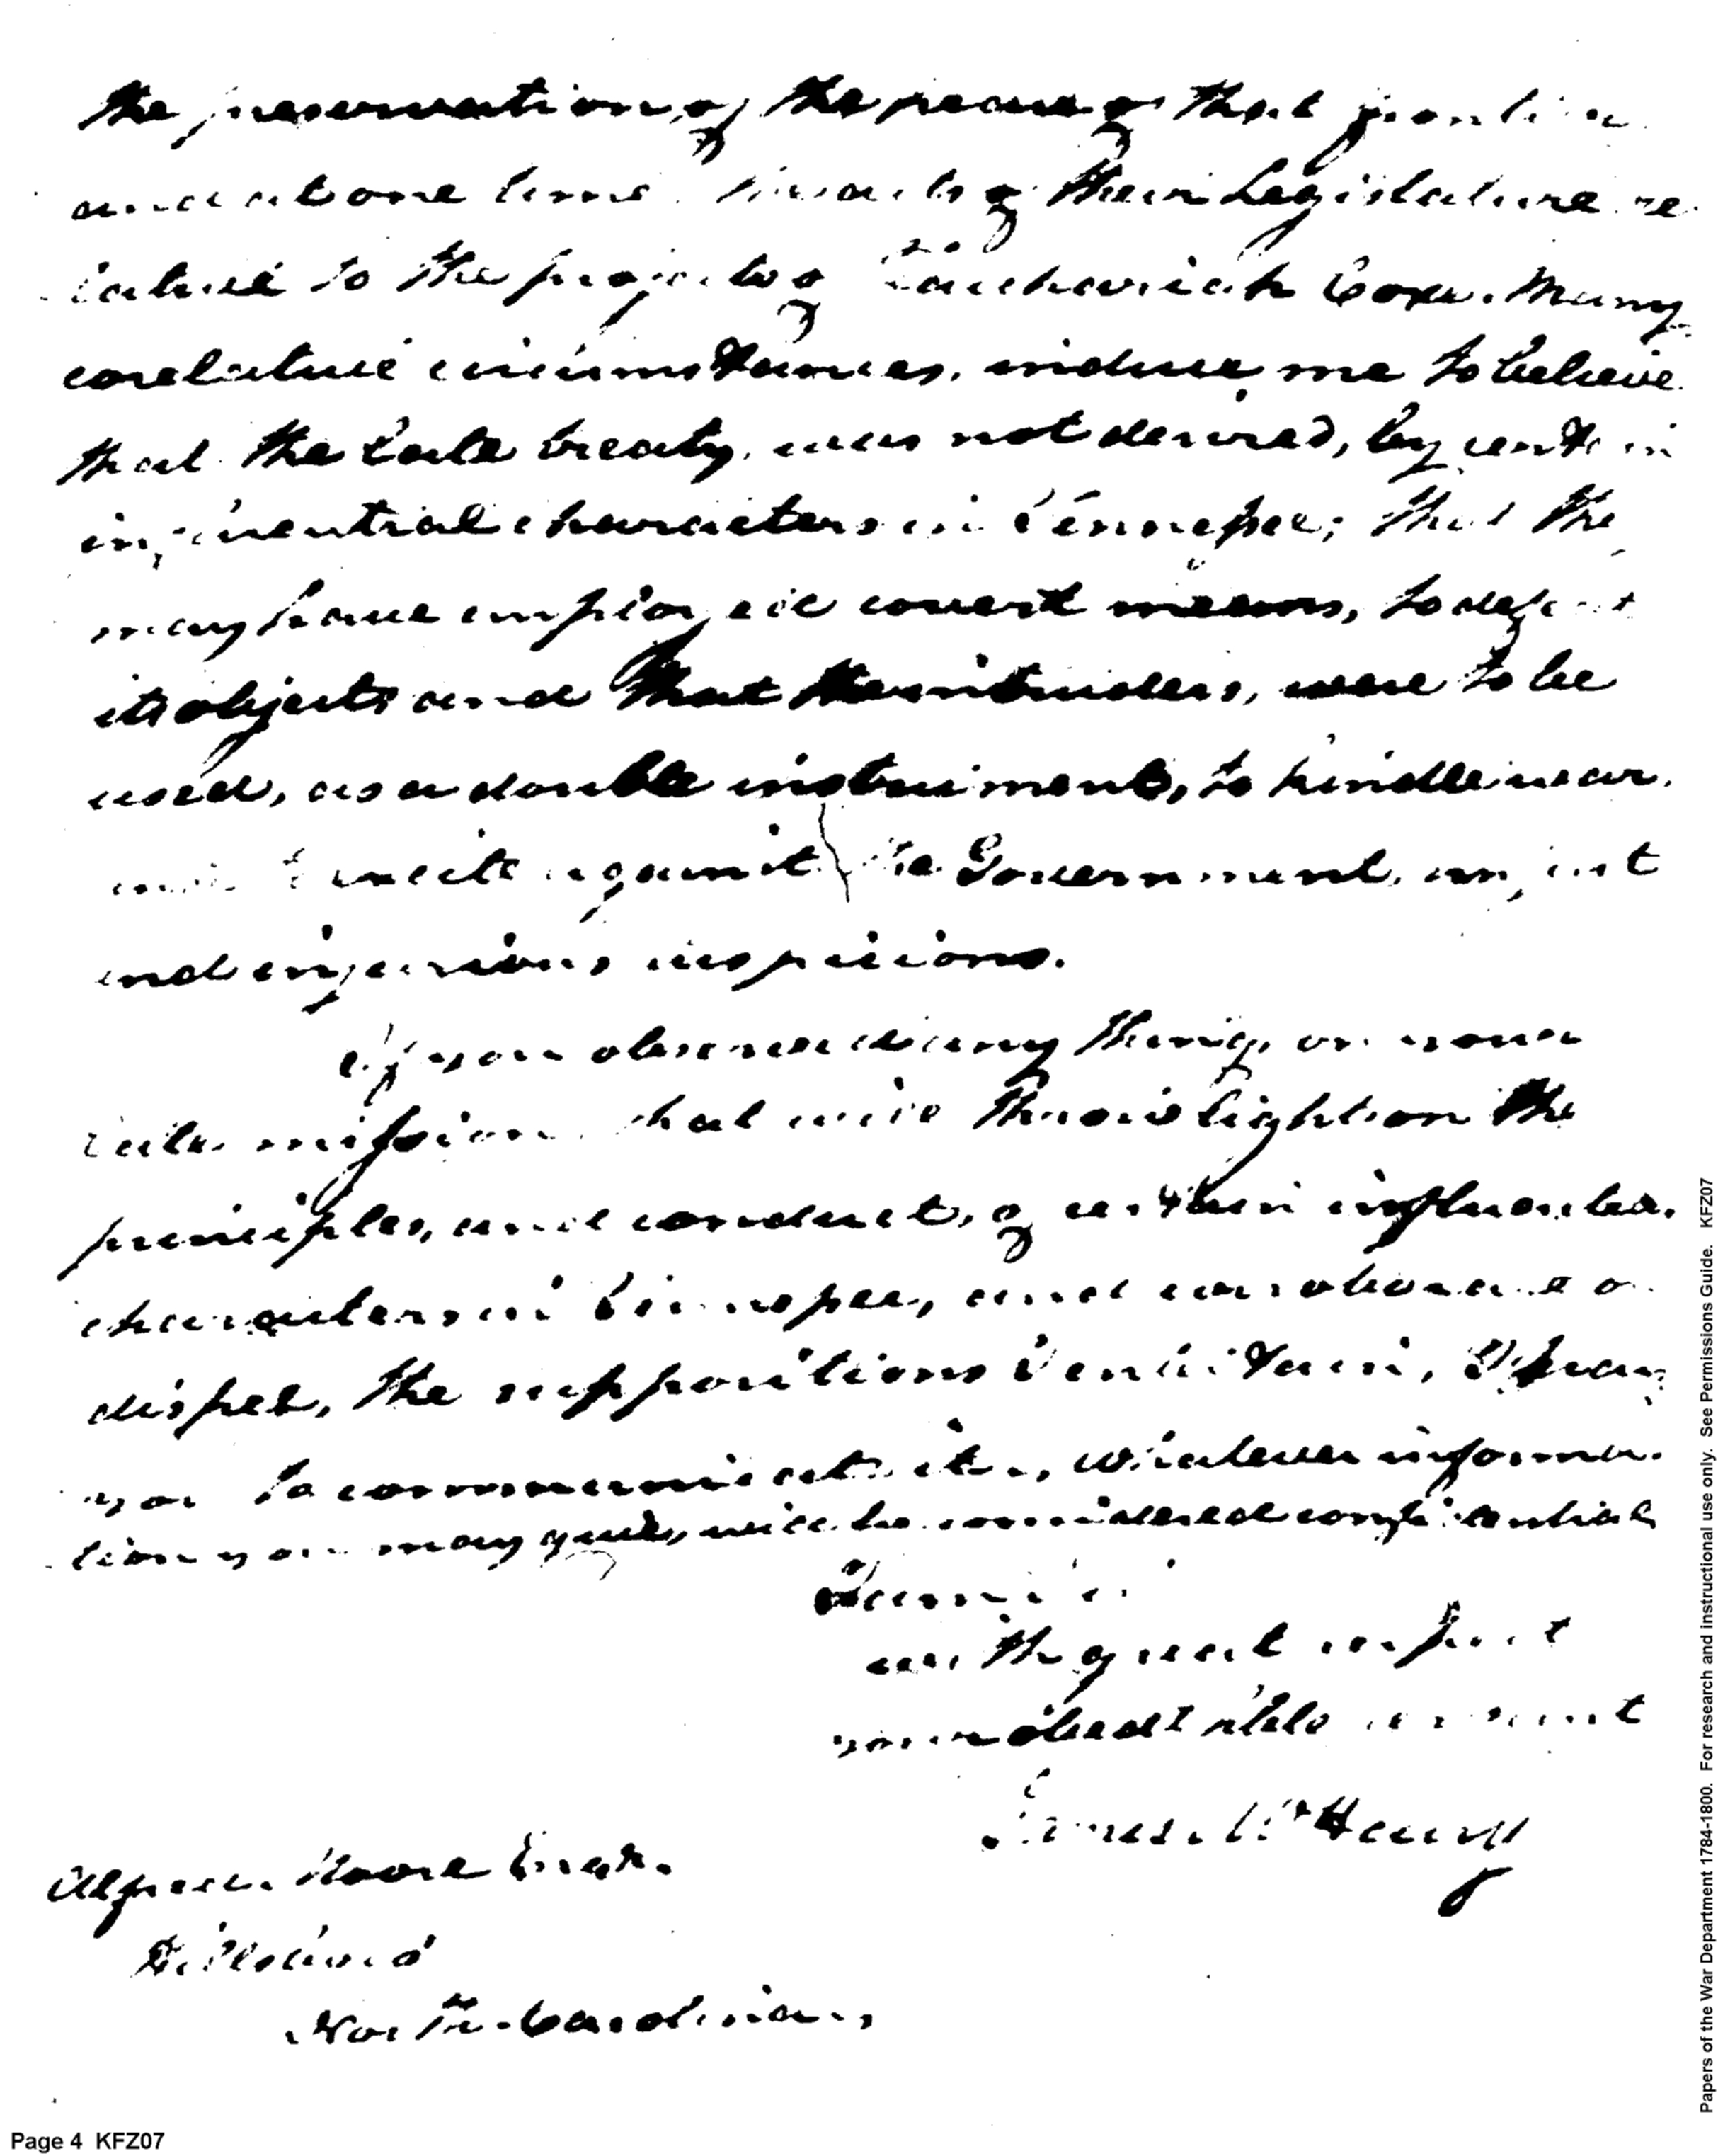 the preservation of the peace of that frontier
and at one time the acts of their Legislature re-
lative to the projects of Zachariah Coxe. Many
corelative circumstances, induce me to believe
that the late treaty, was not desired, by certain
influential characters in Tennessee; that they
may have employed covert means, to defeat
its objects and that the intruders, were to be
used, as a double instrument, to kindle war,
and excite against the Government, unjust
and injurious suspicions.
If you observed any thing, on your
late mission, that will throw light on the
principles, and conduct, of certain influential
characters in Tennessee, and corroborate or
dispel, the suppositions I entertain, I pray
you to communicate it, whatever informa-
tion you may give, will be considered confidential
I am Sir
with great respect
your obedt hble servant
James McHenry
Alfred Moore Esqr.
Hillsboro'
North-Carolina
Papers of the War Department 1784-1800. For research and instructional use only. See Permissions Guide. KFZ07
Page 4 KFZ07